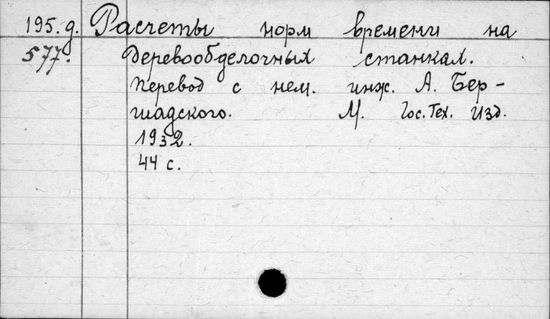 195.д. Расчеты норм времени на
577. Деревообделочных станках.
Перевод с нем. инж. А. Бер-
шадского. М. Гос. Тех. Изд.
1932.
44 с.